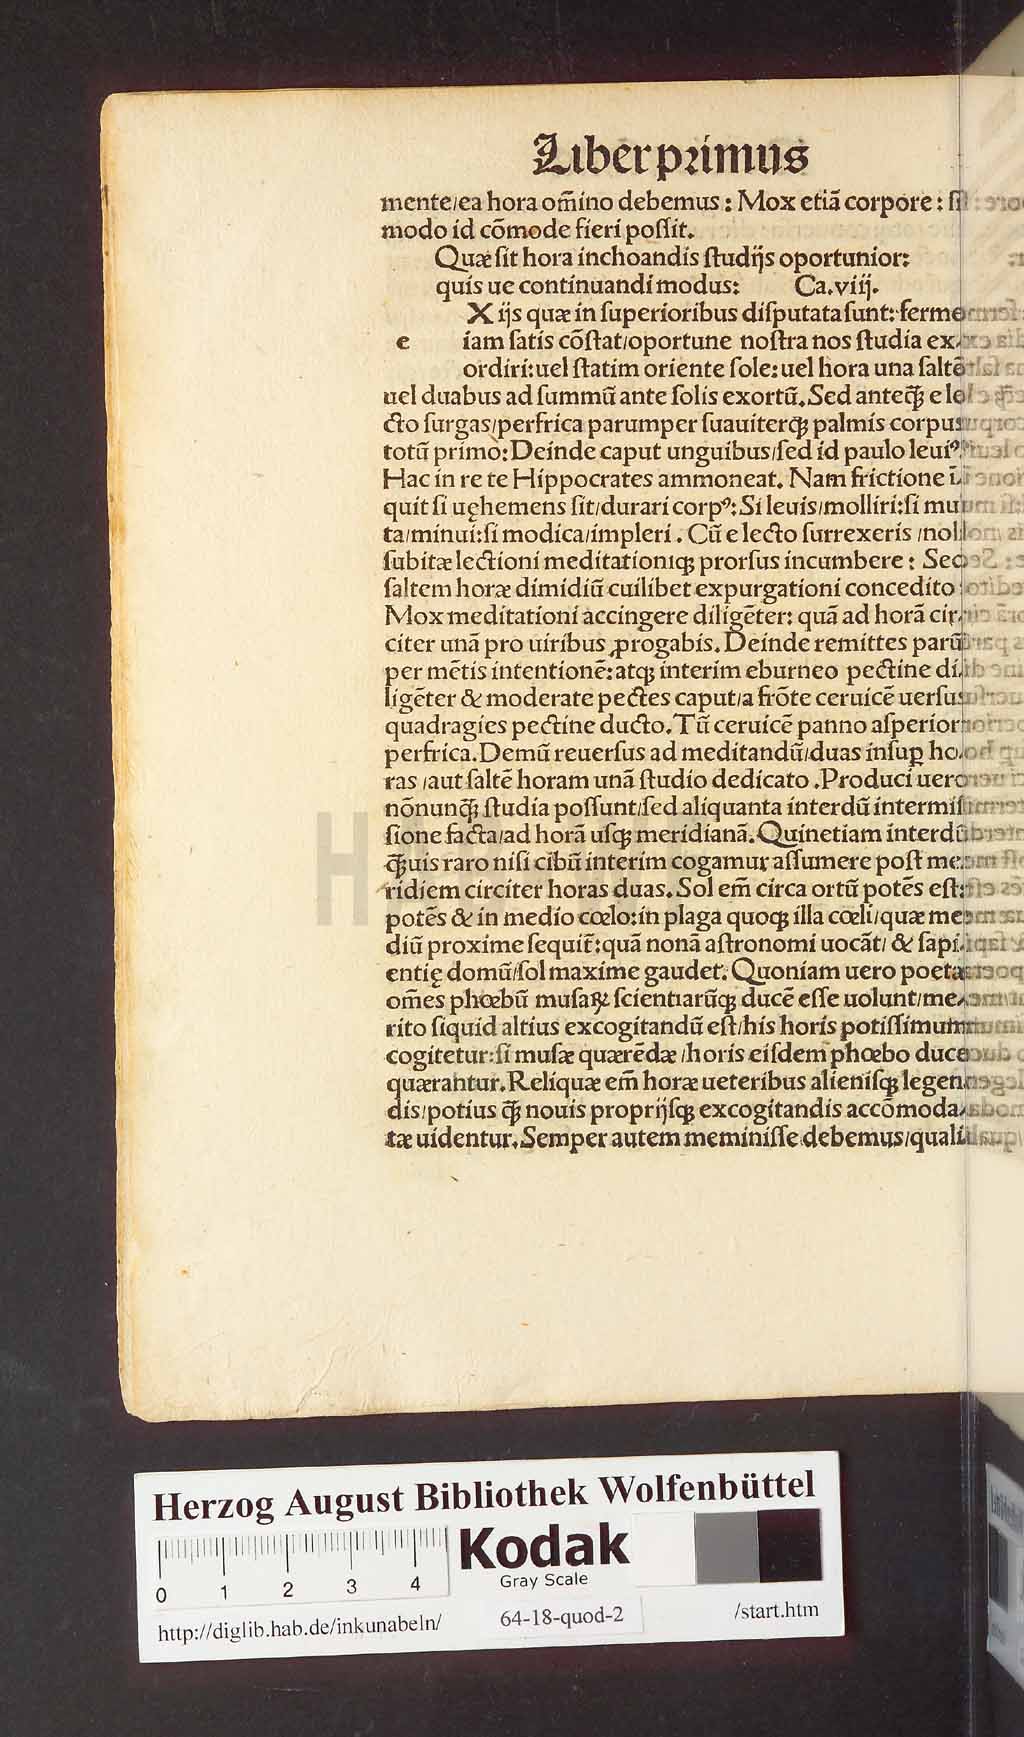 Liber primus
mente/ea hora om̄ino debemus: Mox etiā corpore: si
modo id cōmode fieri poſſit.
Quæ ſit hora inchoandis ſtudijs oportunior:
quis ue continuandi modus: Ca.viij.
X ijs quæ in ſuperioribus diſputata ſunt: ferme
e iam ſatis cōſtat/oportune noſtra nos ſtudia ex
ordiri: uel ſtatim oriente ſole: uel hora una ſaltē
uel duabus ad ſummū ante ſolis exortū. Sed anteq̄ȝ e le
cto ſurgas/perfrica parumper ſuauiterqȝ palmis corpus
totū primò: Deinde caput unguibus/ſed id paulo leuiꝰ
Hac in re te Hippocrates ammoneat. Nam frictione ī
quit ſi uęhemens ſit/durari corpꝰ: Si leuis/molliri: ſi mul
ta/minui: ſi modica/impleri. Cū e lecto ſurrexeris /noli
ſubitæ lectioni meditationiqȝ prorſus incumbere: Sed
ſaltem horæ dimidiū cuilibet expurgationi concedito
Mox meditationi accingere diligēter: quā ad horā cir
citer unā pro uiribus ꝓrogabis. Deinde remittes parū
per mētis intentionē: atqȝ interim eburneo pectine di
ligēter & moderate pectes caput/a frōte ceruicē uerſus
quadragies pectine ducto. Tū ceruicē panno aſperiori
perfrica. Demū reuerſus ad meditandū/duas inſuꝑ ho
ras /aut ſaltē horam unā ſtudio dedicato. Produci uero
nōnunq̄ȝ ſtudia poſſunt/ſed aliquanta interdū intermiſ
ſione facta/ad horā uſqȝ meridianā. Quinetiam interdū
q̄ȝuis raro niſi cibū interim cogamur aſſumere poſt me
ridiem circiter horas duas. Sol em̄ circa ortū potēs eſt:
potēs & in medio cœlo: in plaga quoqȝ illa cœli/quæ me
diū proxime ſequit̄: quā nonā aſtronomi uocāt/ & ſapi
entię domū/ſol maxime gaudet. Quoniam uero poetæ
om̄es phœbū muſaꝝ ſcientiarūqȝ ducē eſſe uolunt/me
rito ſiquid altius excogitandū eſt/his horis potiſſimum
cogitetur: ſi muſæ quærēdæ /horis eiſdem phœbo duce
quærantur. Reliquæ em̄ horæ ueteribus alieniſqȝ legen
dis/potius q̄ȝ nouis proprijſqȝ excogitandis accōmoda
tæ uidentur. Semper autem meminiſſe debemus/quali
HAB
Herzog August Bibliothek Wolfenbüttel
0 1 2 3 4
Kodak
Gray Scale
http://diglib.hab.de/inkunabeln/ 64-18-quod-2 /start.htm